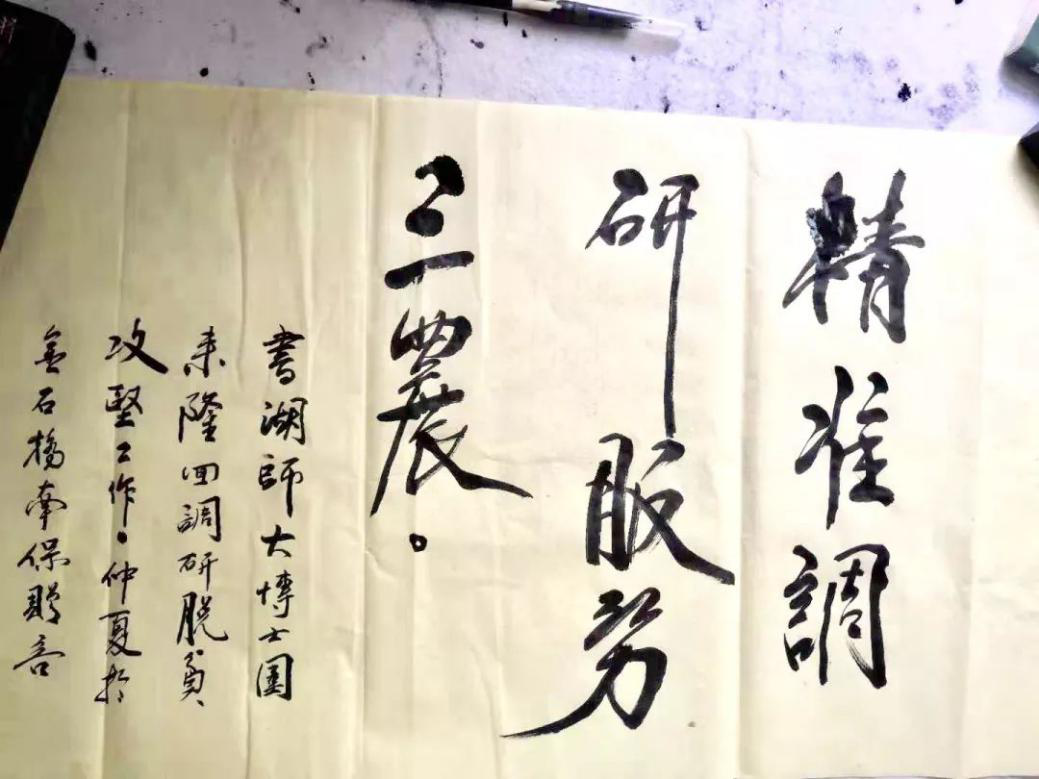 精准調
研服务
三農。
書湖師大博士團
来隆回調研脱貧
攻堅工作。仲夏於
金石橋南保贈言